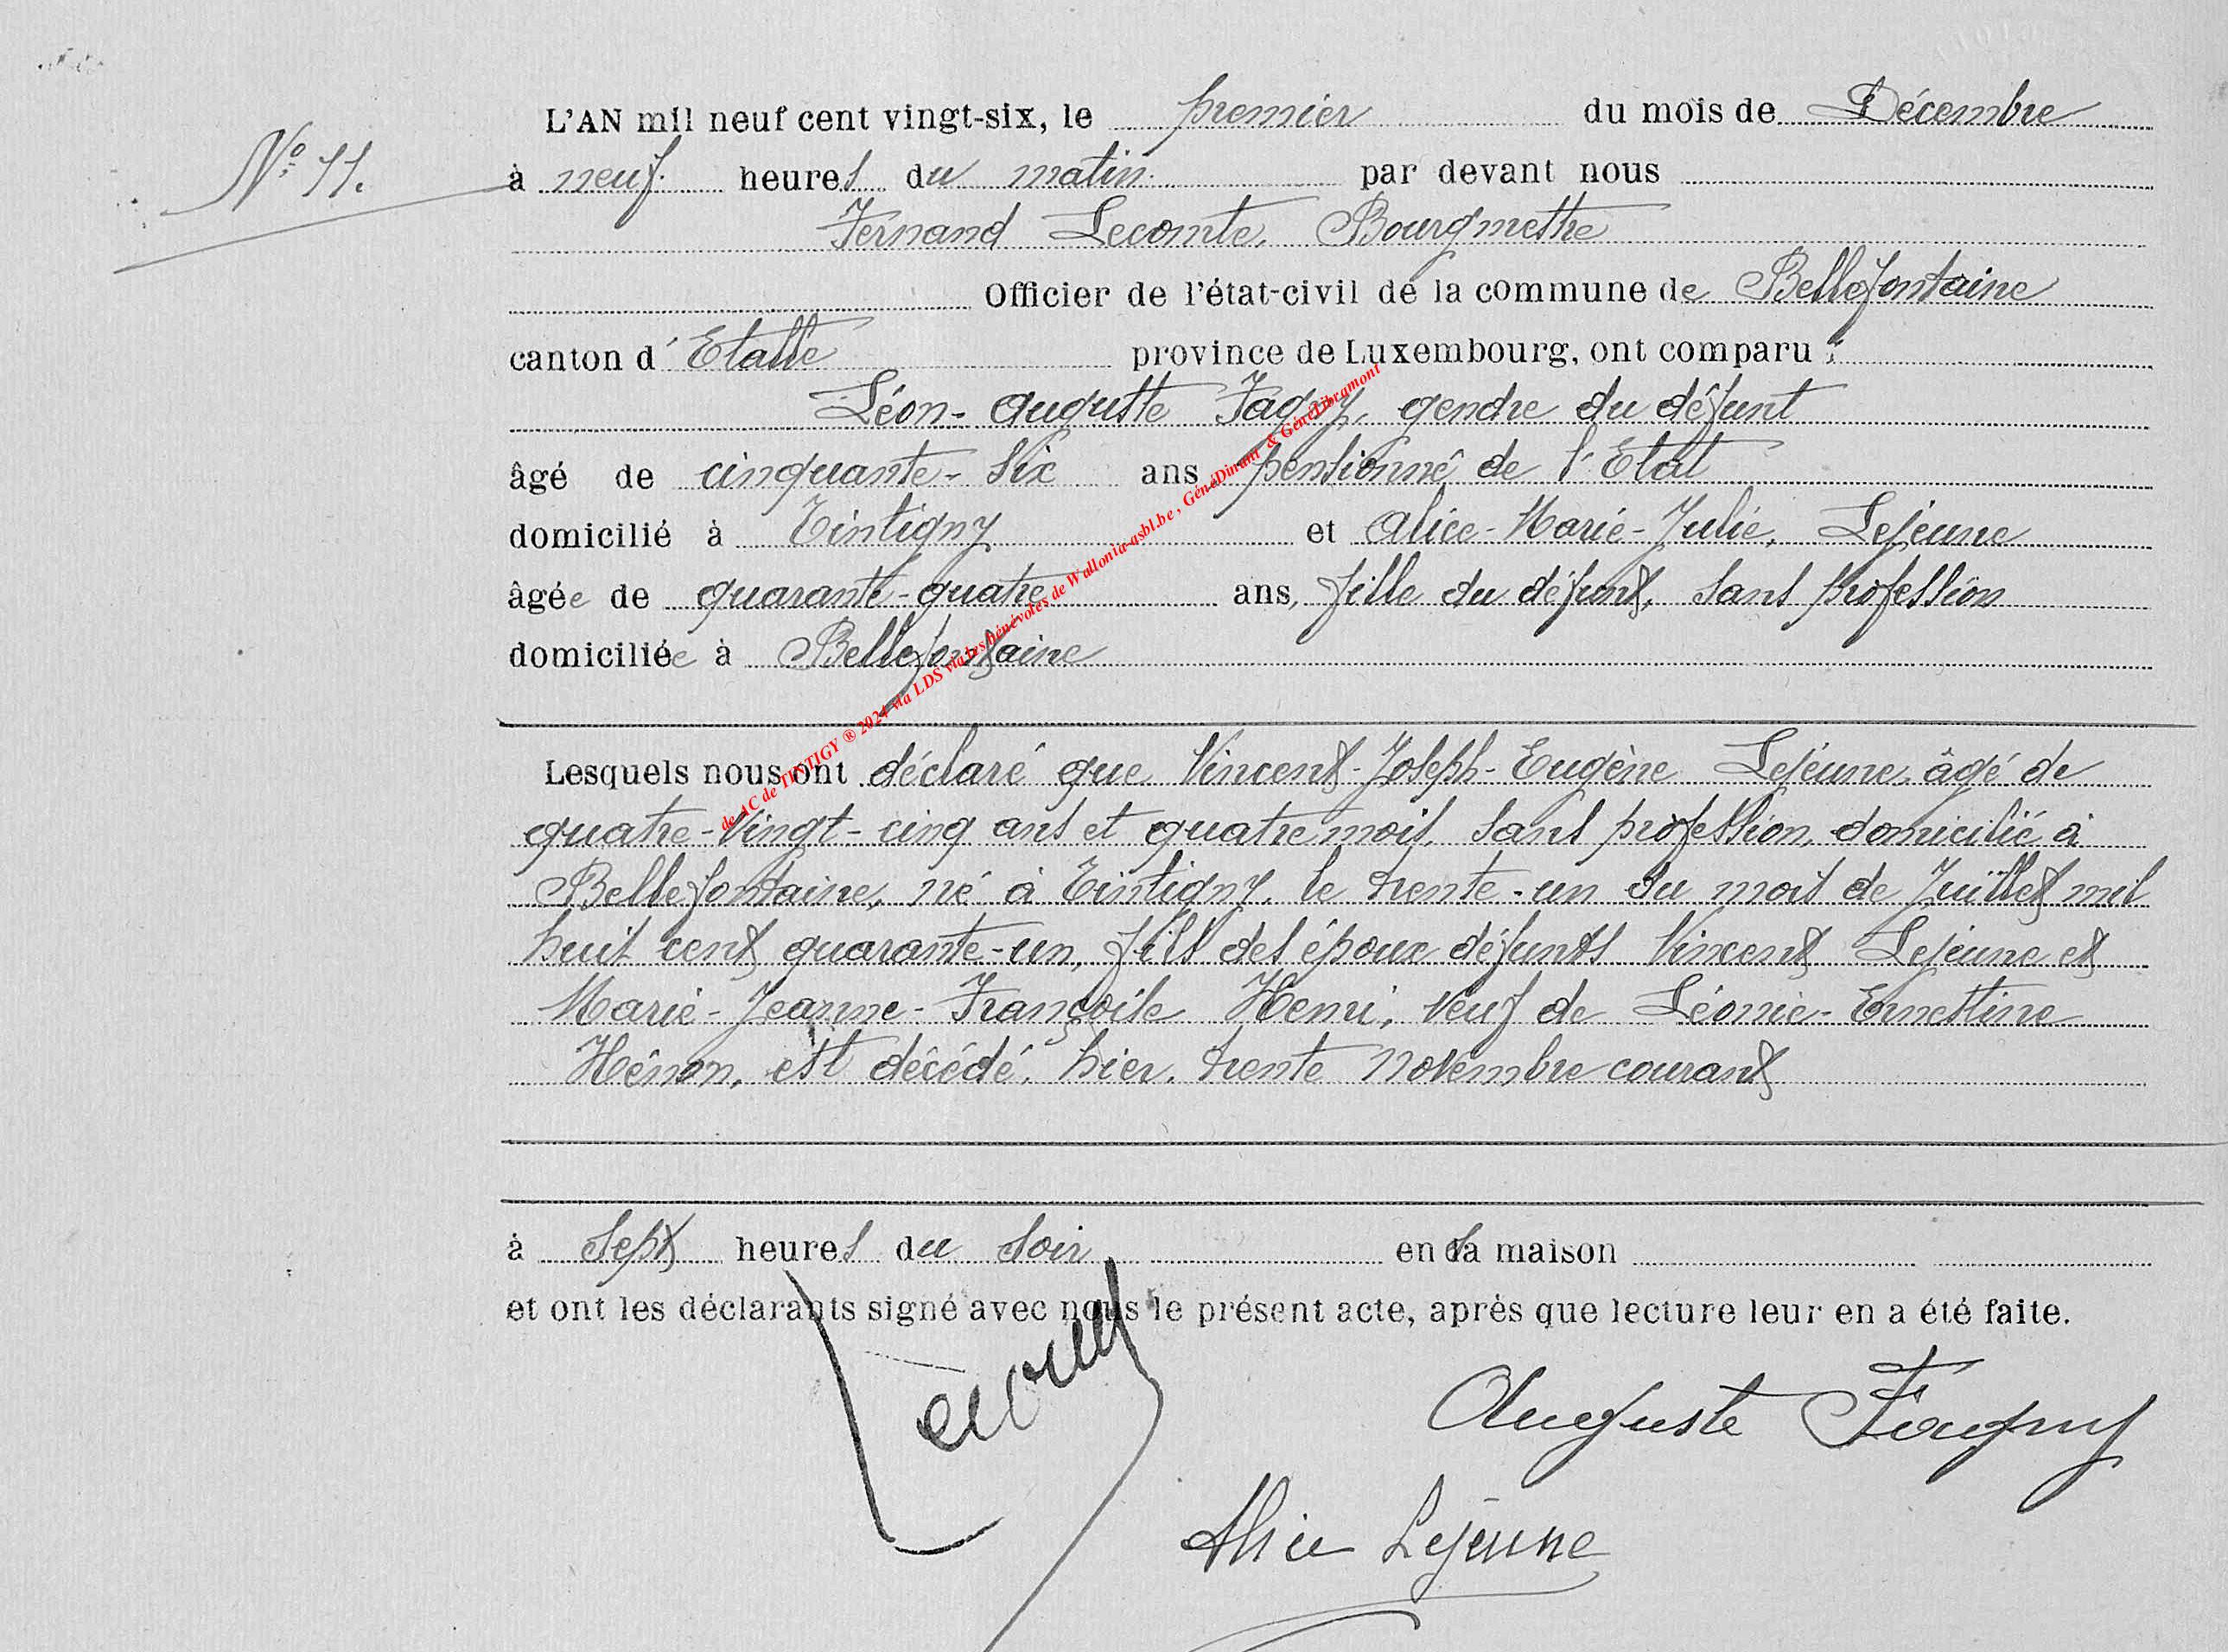 N° 11.
L'AN mil neuf cent vingt-six, le premier du mois de Décembre
à neuf heures du matin par devant nous
Fernand Lecomte, Bourgmestre
Officier de l'état-civil de la commune de Bellefontaine
canton d'Etalle province de Luxembourg, ont comparu :
Léon-Auguste Fagny, gendre du défunt
âgé de cinquante-six ans pensionné de l'Etat
domicilié à Tintigny et Alice-Marie-Julie, Lejeune
âgée de quarante-quatre ans, fille du défunt, sans profession
domiciliée à Bellefontaine
Lesquels nous ont déclaré que Vincent-Joseph-Eugène Lejeune, âgé de
quatre-vingt-cinq ans et quatre mois, sans profession, domicilié à
Bellefontaine, né à Tintigny, le trente-un du mois de Juillet mil
huit cent quarante-un, fils des époux défunts Vincent Lejeune et
Marie-Jeanne-Françoise Henri, veuf de Léonie-Ernestine
Hénon, est décédé, hier, trente novembre courant
à sept heures du soir en sa maison
et ont les déclarants signé avec nous le présent acte, après que lecture leur en a été faite.
Auguste Fagny
Alice Lejeune
de AC de TINTIGY ® 2024 via LDS via les bénévoles de Wallonia-asbl.be, GénéDinant & GénéLibramont